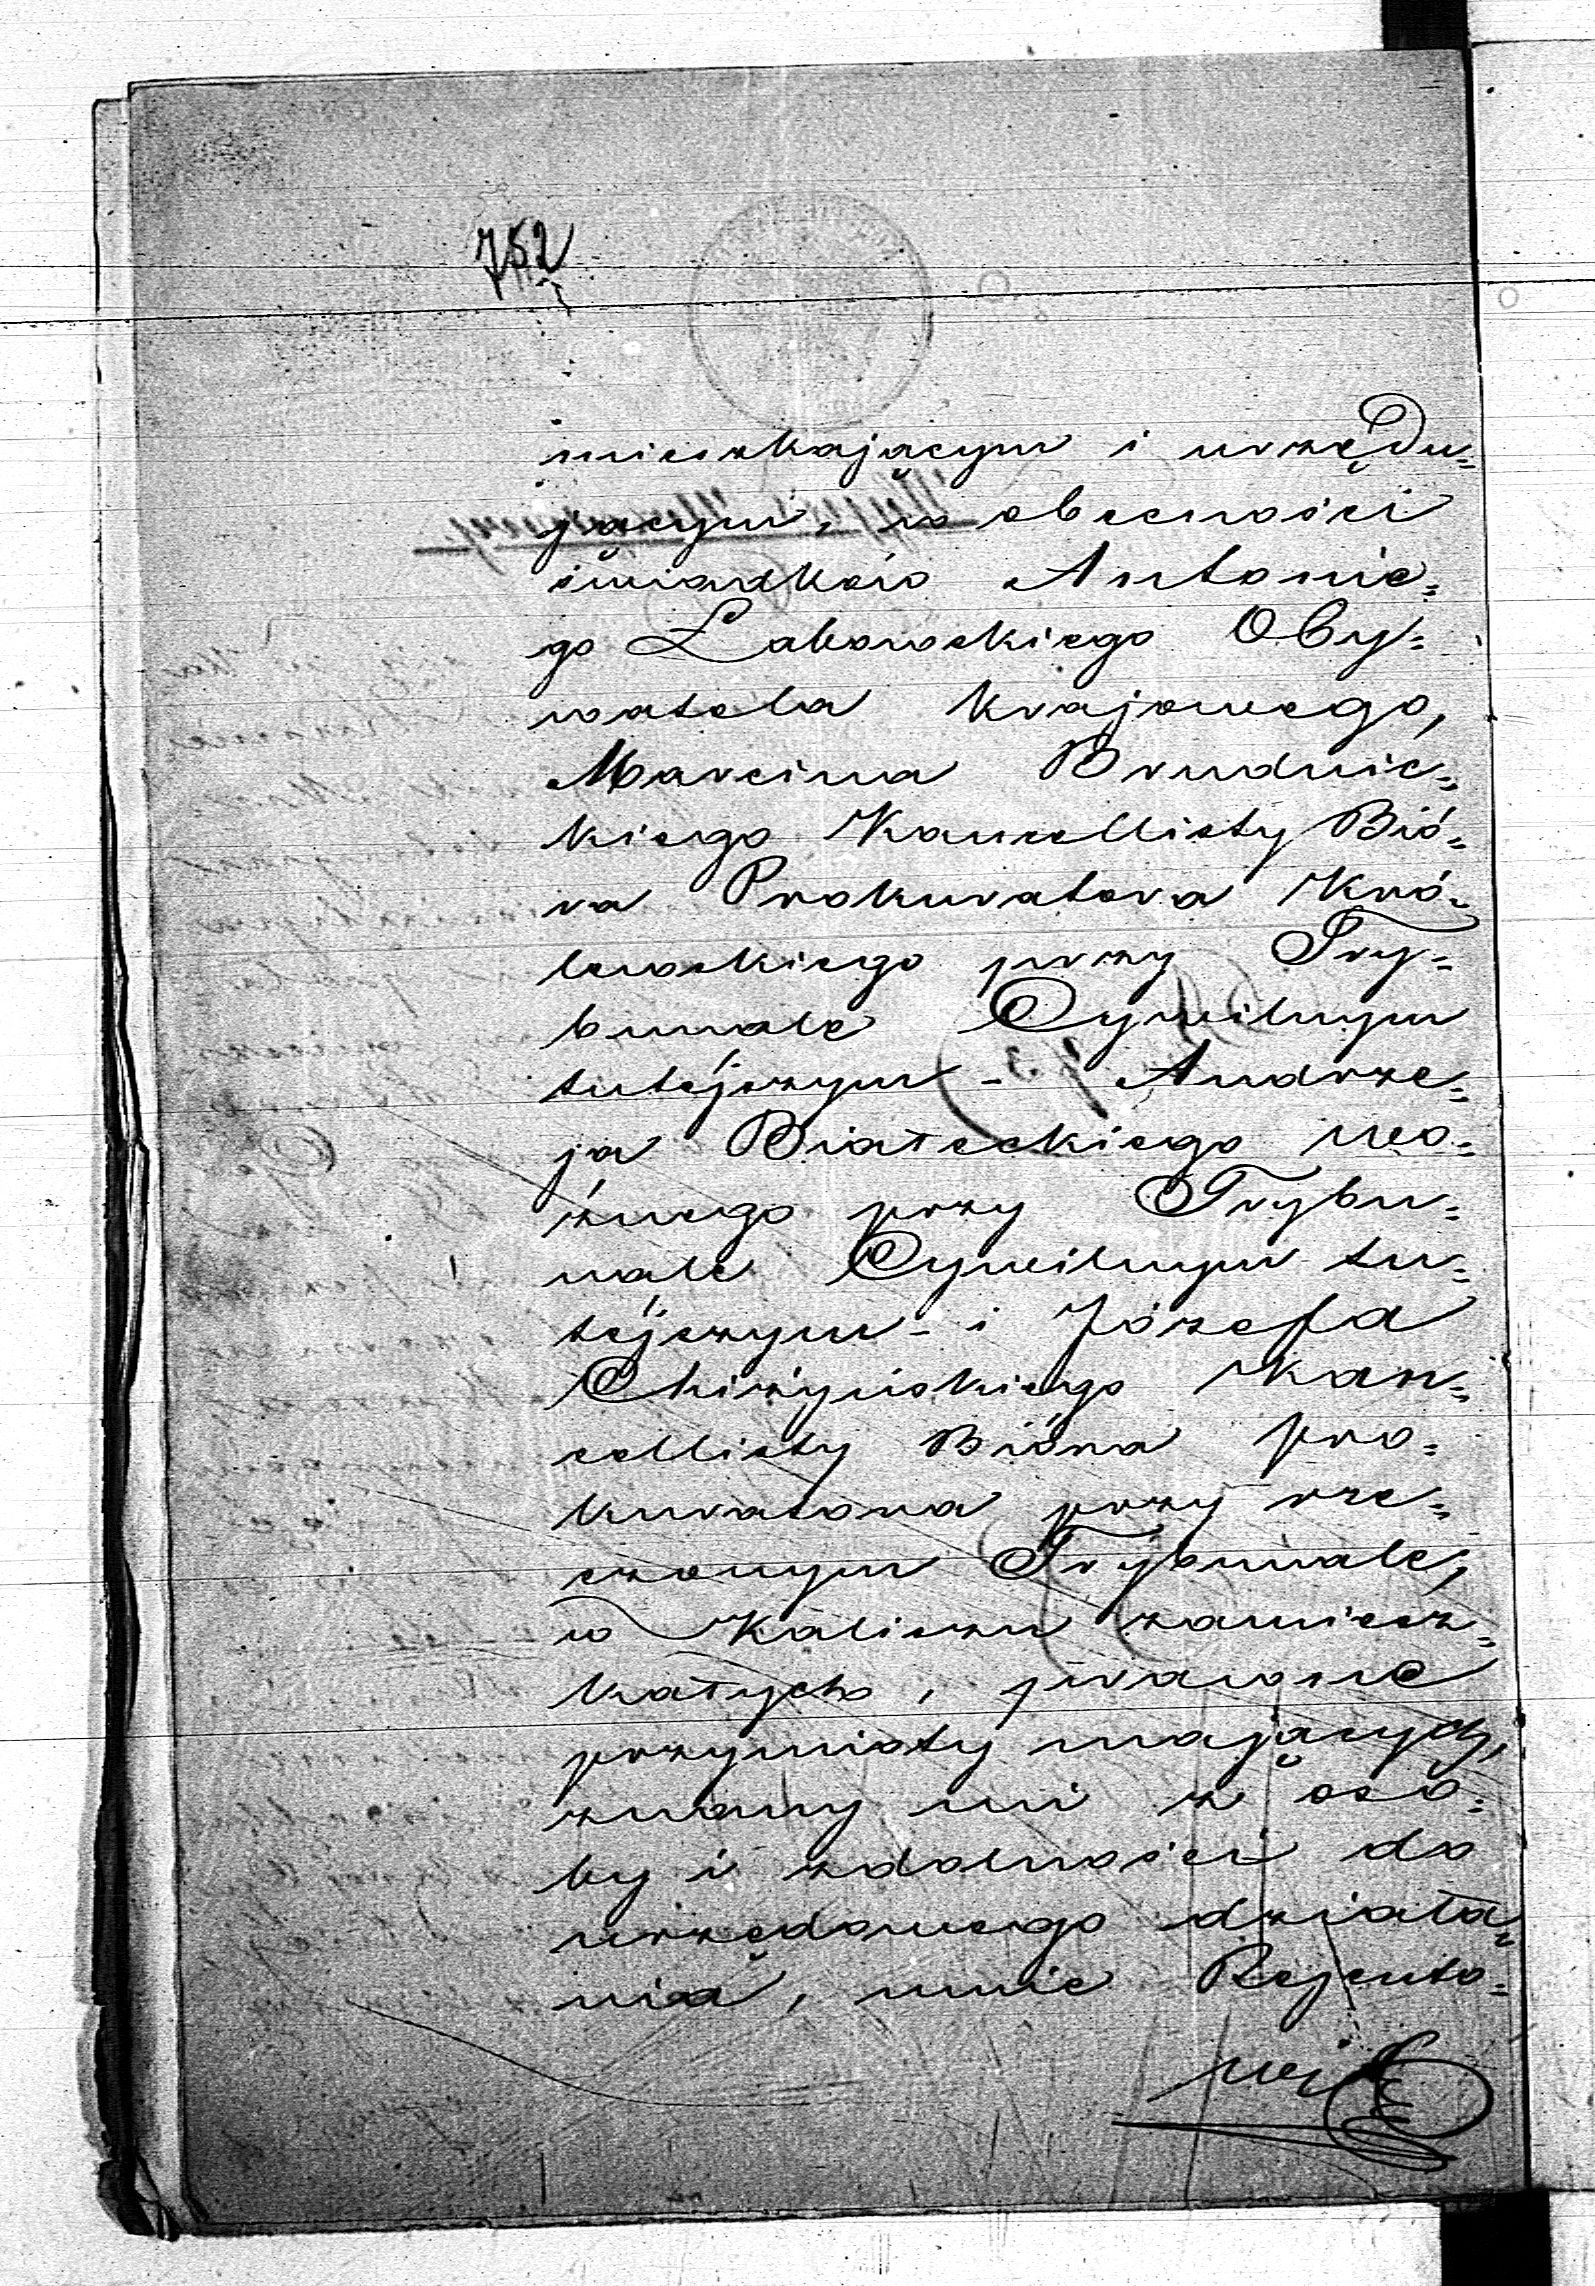 752
mieszkającym i urzędu=
jącym, w obecności
świadków Antonie=
go Labowskiego Oby=
watela krajowego,
Marcina Brudnic=
kiego Kancellisty Bió=
ra Prokuratora Kró=
lewskiego przy Try=
bunale Cywilnym
tutéjszym - Andrze=
ja Białeckiego wo=
źnego przy Trybu=
nale Cywilnym tu=
téjszym - i Józefa
Chiżyńskiego Kan=
cellisty Bióra Pro=
kuratora przy rze=
czonym Trybunale,
w Kaliszu zamiesz=
kałych, prawne
przymioty mających,
znany mi z oso=
by i zdolności do
urzędowego działa=
nia, mnie Rejento=
wi